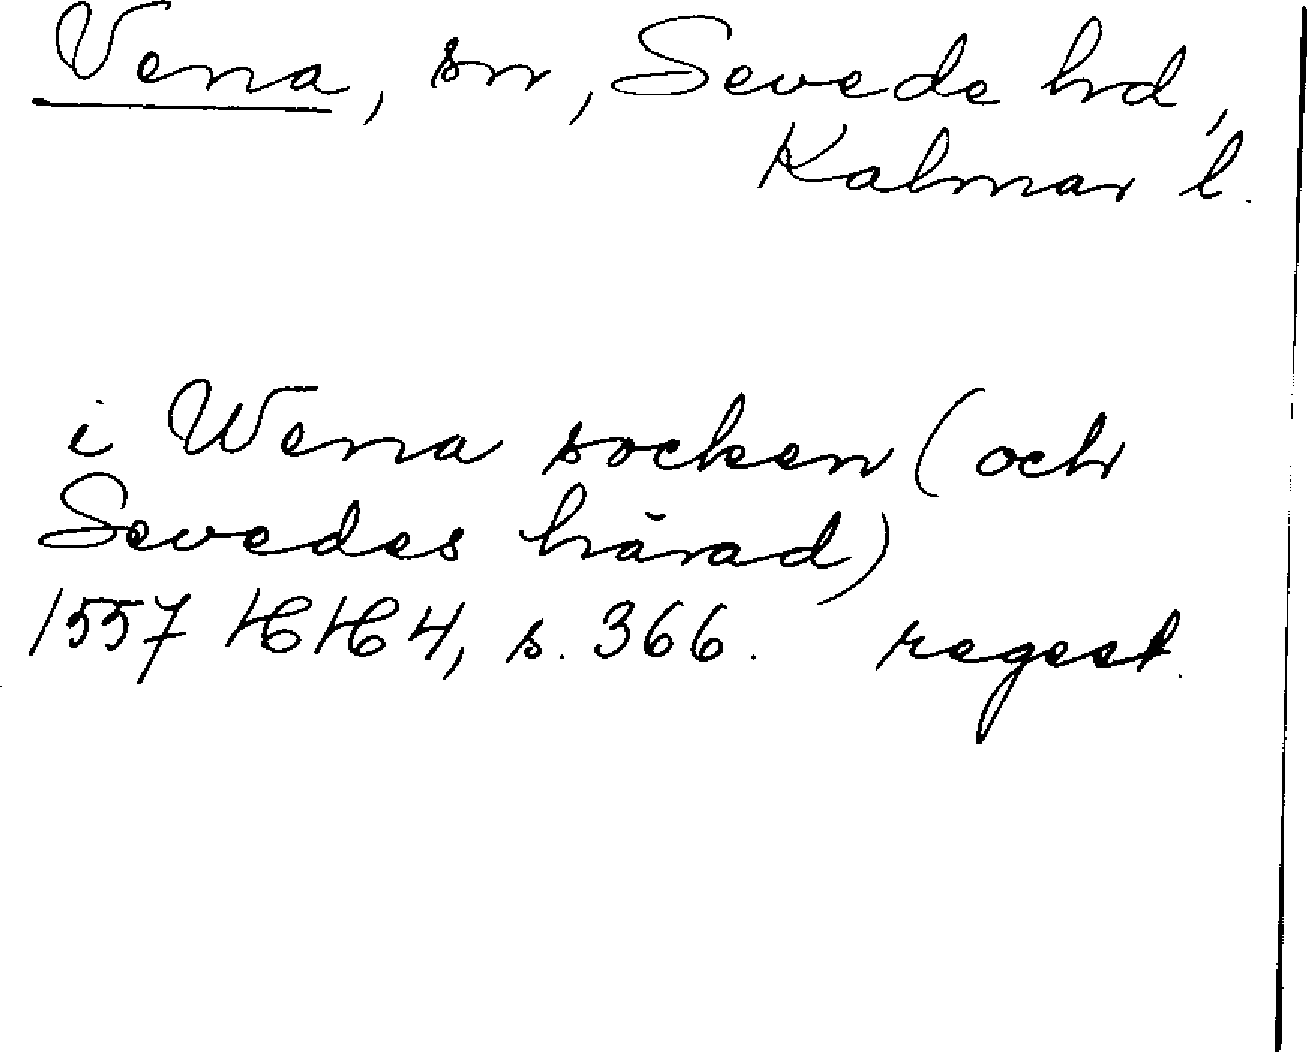 Vena, sn, Sevede hd,
Kalmar l.
i Wena socken (och
Sevedes härad)
1557 HH 4, s. 366. regest.